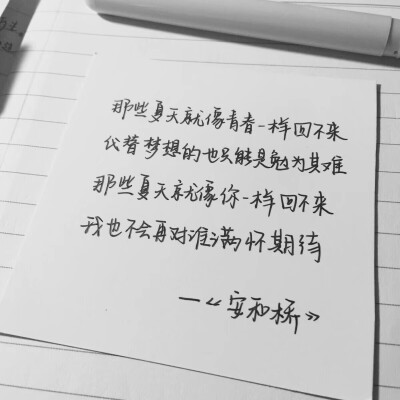 那些夏天就像青春一样回不来
代替梦想的也只能是勉为其难
那些夏天就像你一样回不来
我也不会再对谁满怀期待
—《安和桥》